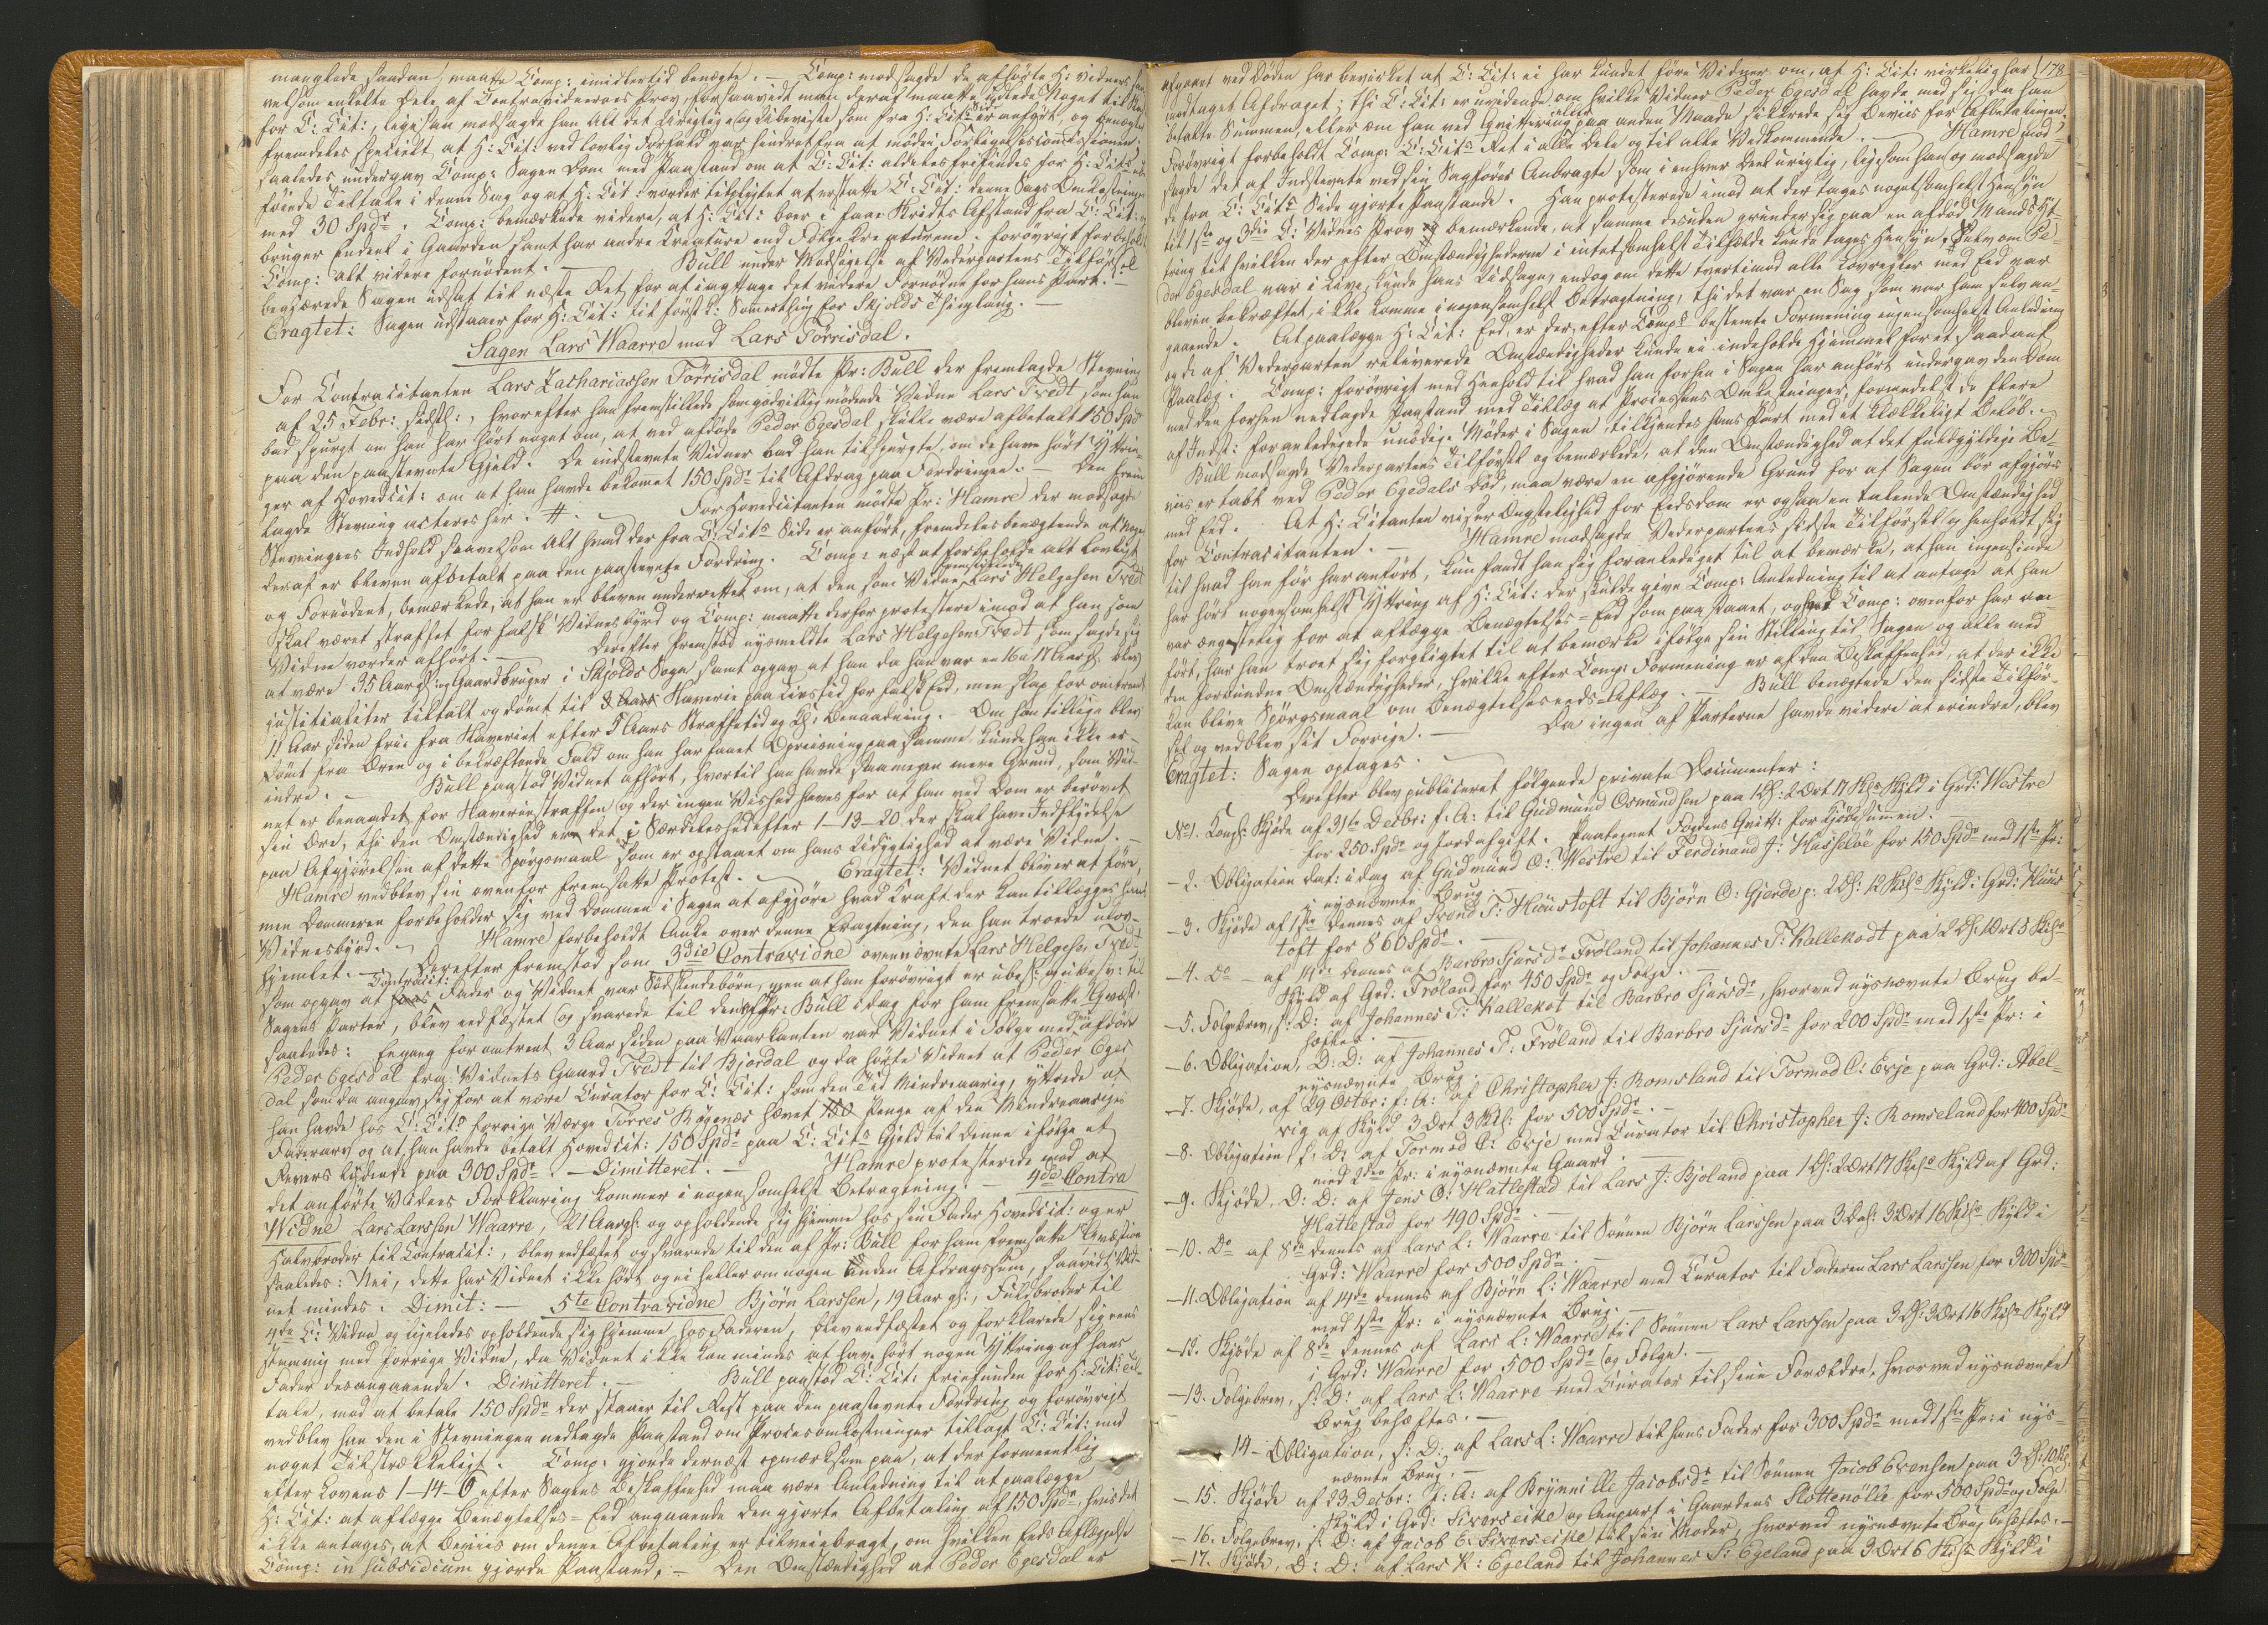 manglede saadan, maatte Comp: imidlertid benægte. — Comp: modsagde de afhørte H: vidners
velsom enkelte Dele af Contravidnernes Prov, forsaavidt man deraf maatte udlede Noget til
for C: Cit:, ligesom modsagde han Alt det Urigtige og Ubeviste som fra H: Cits Side er anført, og benægter
fremdeles specielt at H: Cit: ved lovlig Forfald var hindret fra at møde i Forligelsescommissionen;
saaledes undergav Comp: Sagen Dom med Paastand om at C: Cit: aldeles frifindes for H: Cits
føiede Tiltale i denne Sag og at H: Cit: vorder tilpligtet at erstatte C: Cit: denne Sags Omkostninger
med 30 Spdr. Comp: bemærkede videre, at H: Cit: boer i faae Skridts Afstand fra C: Cit:
bruger Endeel i Gaarden samt har andre Kreature end Følgekreaturene. forøvrigt forbeholdt
Comp: alt videre fornødent. — Bull under Modsigelse af Vederpartens Tilførsel
begjærede Sagen udsat til næste Ret for at iagttage det videre Fornødne for hans Part. —
Eragtet: Sagen udstaaer for H: Cit: til førstk: Sommerthing for Skjolds Thinglaug. —
Sagen Lars Waarre mod Lars Tørrisdal.
For Contracitanten Lars Zachariassen Tørrisdal mødte Pr: Bull der fremlagde Stevning
af 25 Febr: sidstl:, hvorefter han fremstillede som godvillig mødende Vidne Lars Tredt som han
bad spurgt om han har hørt noget om, at ved afdøde Peder Egesdal skulle være afbetalt 150 Spd
paa den paastevnte Gjeld. De indstevnte Vidner bad han tilspurgte, om de have hørt Yttrin-
ger af Hovedcit: om at han havde bekomet 150 Spdr til Afdrag paa Fordringen. — Den frem
lagde Stevning acteres her. #. — For Hovedcitanten mødte Pr: Hamre der modsagde
Stevningens Indhold saavelsom Alt hvad der fra C: Cits Side er anført, fremdeles benægtende at Noget
deraf er bleven afbetalt paa den paastevnte Fordring. Comp: næst at forbeholde alt Lovligt
og Fornødent, bemærkede, at han er bleven underrettet om, at den som Vidne fremstillede Lars Helgesen Tredt
skal været straffet for falsk Vidnesbyrd og Comp: maatte derfor protestere imod at han som
Vidne vorder afhørt. — Derefter fremstod nysmeldte Lars Helgesen Tredt som sagde sig
at være 35 Aar gl: og Gaardbruger i Skjolds Sogn samt opgav at han da han var en 16 a 17 Aar gl: blev
justitialiter tiltalt og dømt til Slaverie paa Livstid for falsk Eed, men slap for omtrent
11 Aar siden fri fra Slaveriet efter 5 Aars Straffetid og Kl: Benaadning. Om han tillige blev
dømt fra Æren og i bekræftende Fald om han har faaet Opreisning paa samme kunde han ikke er-
indre. — Bull paastod Vidnet afhørt, hvortil han havde saameget mere Grund, som Vid-
net er benaadet for Slaveriestraffen og der ingen Vished haves for at han ved Dom er berøvet
sin Ære, thi den Omstændighed er det i Særdeleshed efter 1–13–20 der skal have Indflydelse
paa Afgjørelsen af dette Spørgsmaal som er opstaaet om hans Udygtighed at være Vidne. —
Hamre vedblev sin ovenfor fremsatte Protest. — Eragtet: Vidnet bliver at føre,
men Dommeren forbeholder sig ved Dommen i Sagen at afgjøre hvad Kraft der kan tillægges hans
Vidnesbyrd. — Hamre forbeholdt Anke over denne Eragtning, den han troede ulov-
hjemlet. — Derefter fremstod som 3die Contravidne ovennævnte Lars Helgesn Tredt
som opgav at Contracit: Fader og Vidnet var Sødskendebørn, men at han forøvrigt er ubesl: og ubesv: til
Sagens Parter, blev eedfæstet og svarede til den af Pr: Bull idag for ham fremsatte Qvæst:
saaledes: Engang for omtrent 3 Aar siden paa Vaarkanten var Vidnet i Følge med afdøde
Peder Egesdal fra Vidnets Gaard Tredt til Bjordal og da hørte Vidnet at Peder Eges
dal som da angav sig for at være Curator for C: Cit: som den Tid Mindreaarig, yttrede at
han havde hos C: Cits forrige Værge Torres Røgenæs hævet Penge af den Mindreaariges
Fædrearv og at han havde betalt Hovedcit: 150 Spdr paa C: Cits Gjeld til denne ifølge et
Revers lydende paa 300 Spdr. — Dimitteret. — Hamre protesterede mod at
det anførte Vidnes Forklaring kommer i nogensomhelst Betragtning. — 4de Contra
Widne Lars Larssen Waarre, 21 Aar gl: og opholdende sig hjemme hos sin Fader Hovedcit: og er
Halvbroder til Contracit:, blev eedfæstet og svarede til den af Pr: Bull for ham fremsatte Qvæstion
saaledes: Nei, dette har Vidnet ikke hørt og ei heller om nogen Anden Afdragssum, saavidt Vid-
net mindes. Dimit: — 5te Contravidne Bjørn Larssen, 19 Aar gl:, Fuldbroder til
4de C: Vidne og ligeledes opholdende sig hjemme hos Faderen, blev eedfæstet og forklarede sig eens
stemmig med forrige Vidne, da Vidnet ikke kan mindes at have hørt nogen Yttring af hans
Fader desangaaende. Dimitteret. — Bull paastod C: Cit: friefunden for H: Cits Til-
tale, mod at betale 150 Spdr der staaer til Rest paa den paastevnte Fordring og forøvrigt
vedblev han den i Stevningen nedlagte Paastand om Procesomkostninger tillagt C: Cit: med
noget Tilstrækkeligt. Comp: gjorde dernæst opmærksom paa, at der formeentlig
efter Lovens 1–14–6 efter Sagens Beskaffenhed maa være Anledning til at paalægge
H: Cit: at aflægge Benægtelses-Eed angaaende den gjorte Afbetaling af 150 Spdr, hvis det
ikke antages, at Beviis om denne Afbetaling er tilveiebragt, om hvilken Eeds Aflæggelse
Comp: in subsidium gjorde Paastand. — Den Omstændighed at Peder Egesdal er
178
afgaaet ved Døden har bevirket at C: Cit: ei har kundet føre Vidner om, at H: Cit: virkelig har
modtaget Afdraget; thi C: Cit: er uvidende om hvilke Vidner Peder Egesdal havde med sig da han
betalte Summen, eller om han ved Qvittering eller paa anden Maade sikkrede sig Beviis for Afbetalingen.
Forøvrigt forbeholdt Comp: C: Cits Ret i alle Dele og til alle Vedkommende. — Hamre mod
sagde det af Indstevnte ved sin Sagfører Anbragte som i enhver Deel urigtig, ligesom han og modsagde
de fra C: Cits Side gjorte Paastande. Han protesterede imod at der tages nogetsomhelst Hensyn
til 1ste og 3die C: Vidnes Prov bemærkende, at samme desuden grunder sig paa en afdød Mands Yt-
tring til hvilken der efter Omstændighederne i intetsomhelst Tilfælde kunde tages Hensyn. Selv om Pe-
der Egesdal var i Live, kunde hans Udsagn, endog om dette tvertimod alle Lovregler med Eed var
bleven bekræftet, ikke komme i nogensomhelst Betragtning, thi det var en Sag som var ham selv an-
gaaende. At paalægge H: Cit: Eed, er der efter Comps bestemte Formening ingensomhelst Anledning
og de af Vederparten releverede Omstændigheder kunde ei indeholde Hjemmel for et saadant
Paalæg. Comp: forøvrigt med Henhold til hvad han forhen i Sagen har anført undergav den Dom
med den forhen nedlagde Paastand med Tillæg at Processens Omkostninger, formedelst de flere
af Indst: foranledigede unødige Møder i Sagen, tilkjendes hans Part med et klækkeligt Beløb. —
Bull modsagde Vederpartens Tilførsel og bemærkede, at den Omstændighed at det fuldgyldige Be-
viis er tabt ved Peder Egedals Død, maa være en afgjørende Grund for at Sagen bør afgjøres
med Eed. At H: Citanten viser Ængstelighed for Eedsdom er ogsaa en talende Omstændighed
for Contracitanten. — Hamre modsagde Vederpartens sidste Tilførsel og henholdt sig
til hvad han før har anført, kun fandt han sig foranlediget til at bemærke, at han ingensinde
har hørt nogensomhelst Yttring af H: Cit: der skulde give Comp: Anledning til at antage at han
var ængstelig for at aflægge Benægtelses-Eed som paastaaet, og hvad Comp: ovenfor har an-
ført, har han troet sig forpligtet til at bemærke ifølge sin Stilling til Sagen og alle med
den forbundne Omstændigheder, hvilke efter Comps Formening er af den Beskaffenhed, at der ikke
kan blive Spørgsmaal om Benægtelseseeds Aflæg. — Bull benægtede den sidste Tilfør-
sel og vedblev sit Forrige. — Da ingen af Parterne havde videre at erindre, blev
Eragtet: Sagen optages. —
Derefter blev publiceret følgende private Documenter:
No 1. Kongl: Skjøde af 31te Decbr: f: A: til Gudmund Osmundsen paa 1 L: 2 Ort 17 Skl Skyld i Grd: Westre
for 250 Spdr og Jordafgift. Paategnet Fogdens Qvitt: for Kjøbesummen. —
— 2. Obligation dat: idag af Gudmund O: Westre til Ferdinand J: Hasseløe for 150 Spdr med 1ste Pr:
i nysnævnte Brug. —
— 3. Skjøde af 1ste dennes af Svend T: Haustoft til Bjørn O: Gjerde p: 2 L: 12 Skl Skyld i Grd: Haus
toft for 860 Spdr. —
— 4. Do — af 14de dennes af Barbro Sjursdr Frøland til Johannes T: Kallekodt paa 2 L: 1 Ort 5 Skl
Skyld af Grd: Frøland for 450 Spdr og Følge. —
— 5. Følgebrev, s: D: af Johannes T: Kallekot til Barbro Sjursdr, hvorved nysnævnte Brug be-
hæftes. —
— 6. Obligation, D: D: af Johannes T: Frøland til Barbro Sjursdr for 200 Spdr med 1ste Pr: i
nysnævnte Brug. —
— 7. Skjøde, af 29 Octbr: f: A: af Christopher J: Romsland til Tormod C: Erje paa Grd: Abel-
vig af Skyld 3 Ort 3 Skl: for 500 Spdr. —
— 8. Obligation s: D: af Tormod C: Erje med Curator til Christopher J: Romseland for 400 Spdr
med 2den Pr: i nysnævnte Gaard. —
— 9. Skjøde, D: D: af Jens O: Hatlestad til Lars J: Bjoland paa 1 L: 2 Ort 17 Skl Skyld af Grd:
Hatlestad for 490 Spdr. —
— 10. Do af 8de dennes af Lars L: Waarre til Sønnen Bjørn Larssen paa 3 L: 3 Ort 16 Skl Skyld i
Grd: Waarre for 500 Spdr. —
— 11. Obligation af 14de dennes af Bjørn L: Waarre med Curator til Faderen Lars Larssen for 300 Spdr
med 1ste Pr: i nysnævnte Brug. —
— 12. Skjøde af 8de dennes af Lars L: Waarre til Sønnen Lars Larssen paa 3 L: 3 Ort 16 Skl Skyld
i Grd: Waarre for 500 Spdr og Følge. —
— 13. Følgebrev, s: D: af Lars L: Waarre med Curator til sine Forældre, hvorved nysnævnte
Brug behæftes. —
14 — Obligation, s: D: af Lars L: Waarre til hans Fader for 300 Spdr med 1ste Pr: i nys-
nævnte Brug. —
— 15. Skjøde af 23 Decbr: f: A: af Brynnille Jacobsdr til Sønnen Jacob Evensen paa 3 L: 10 Skl:
Skyld i Grd: Siverseike og Anpart i Gaardens Slottenølle for 500 Spdr og Følge
— 16. Følgebrev, s: D: af Jacob E: Siverseike til sin Moder, hvorved nysnævnte Brug behæftes. —
— 17. Skjøde, D: D: af Lars K: Egeland til Johannes S: Egeland paa 3 Ort 6 Skl Skyld i